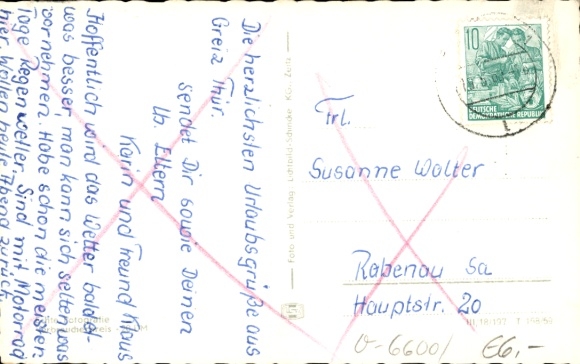 Die herzlichsten Urlaubsgrüße aus
Greiz Thür.
sendet Dir sowie Deinen
lb. Eltern
Karin und Freund Klaus
Hoffentlich wird das Wetter bald et-
was besser, man kann sich selten was
vornehmen. Habe schon die meisten
Tage Regenwetter. Sind mit Motorrad
hier, wollen heute Abend zurück.
Foto und Verlag
10
DEUTSCHE
DEMOKRATISCHE REPUBLIK
Frl.
Susanne Walter
Rabenau Sa
Hauptstr. 20
V-6600/ €6,-